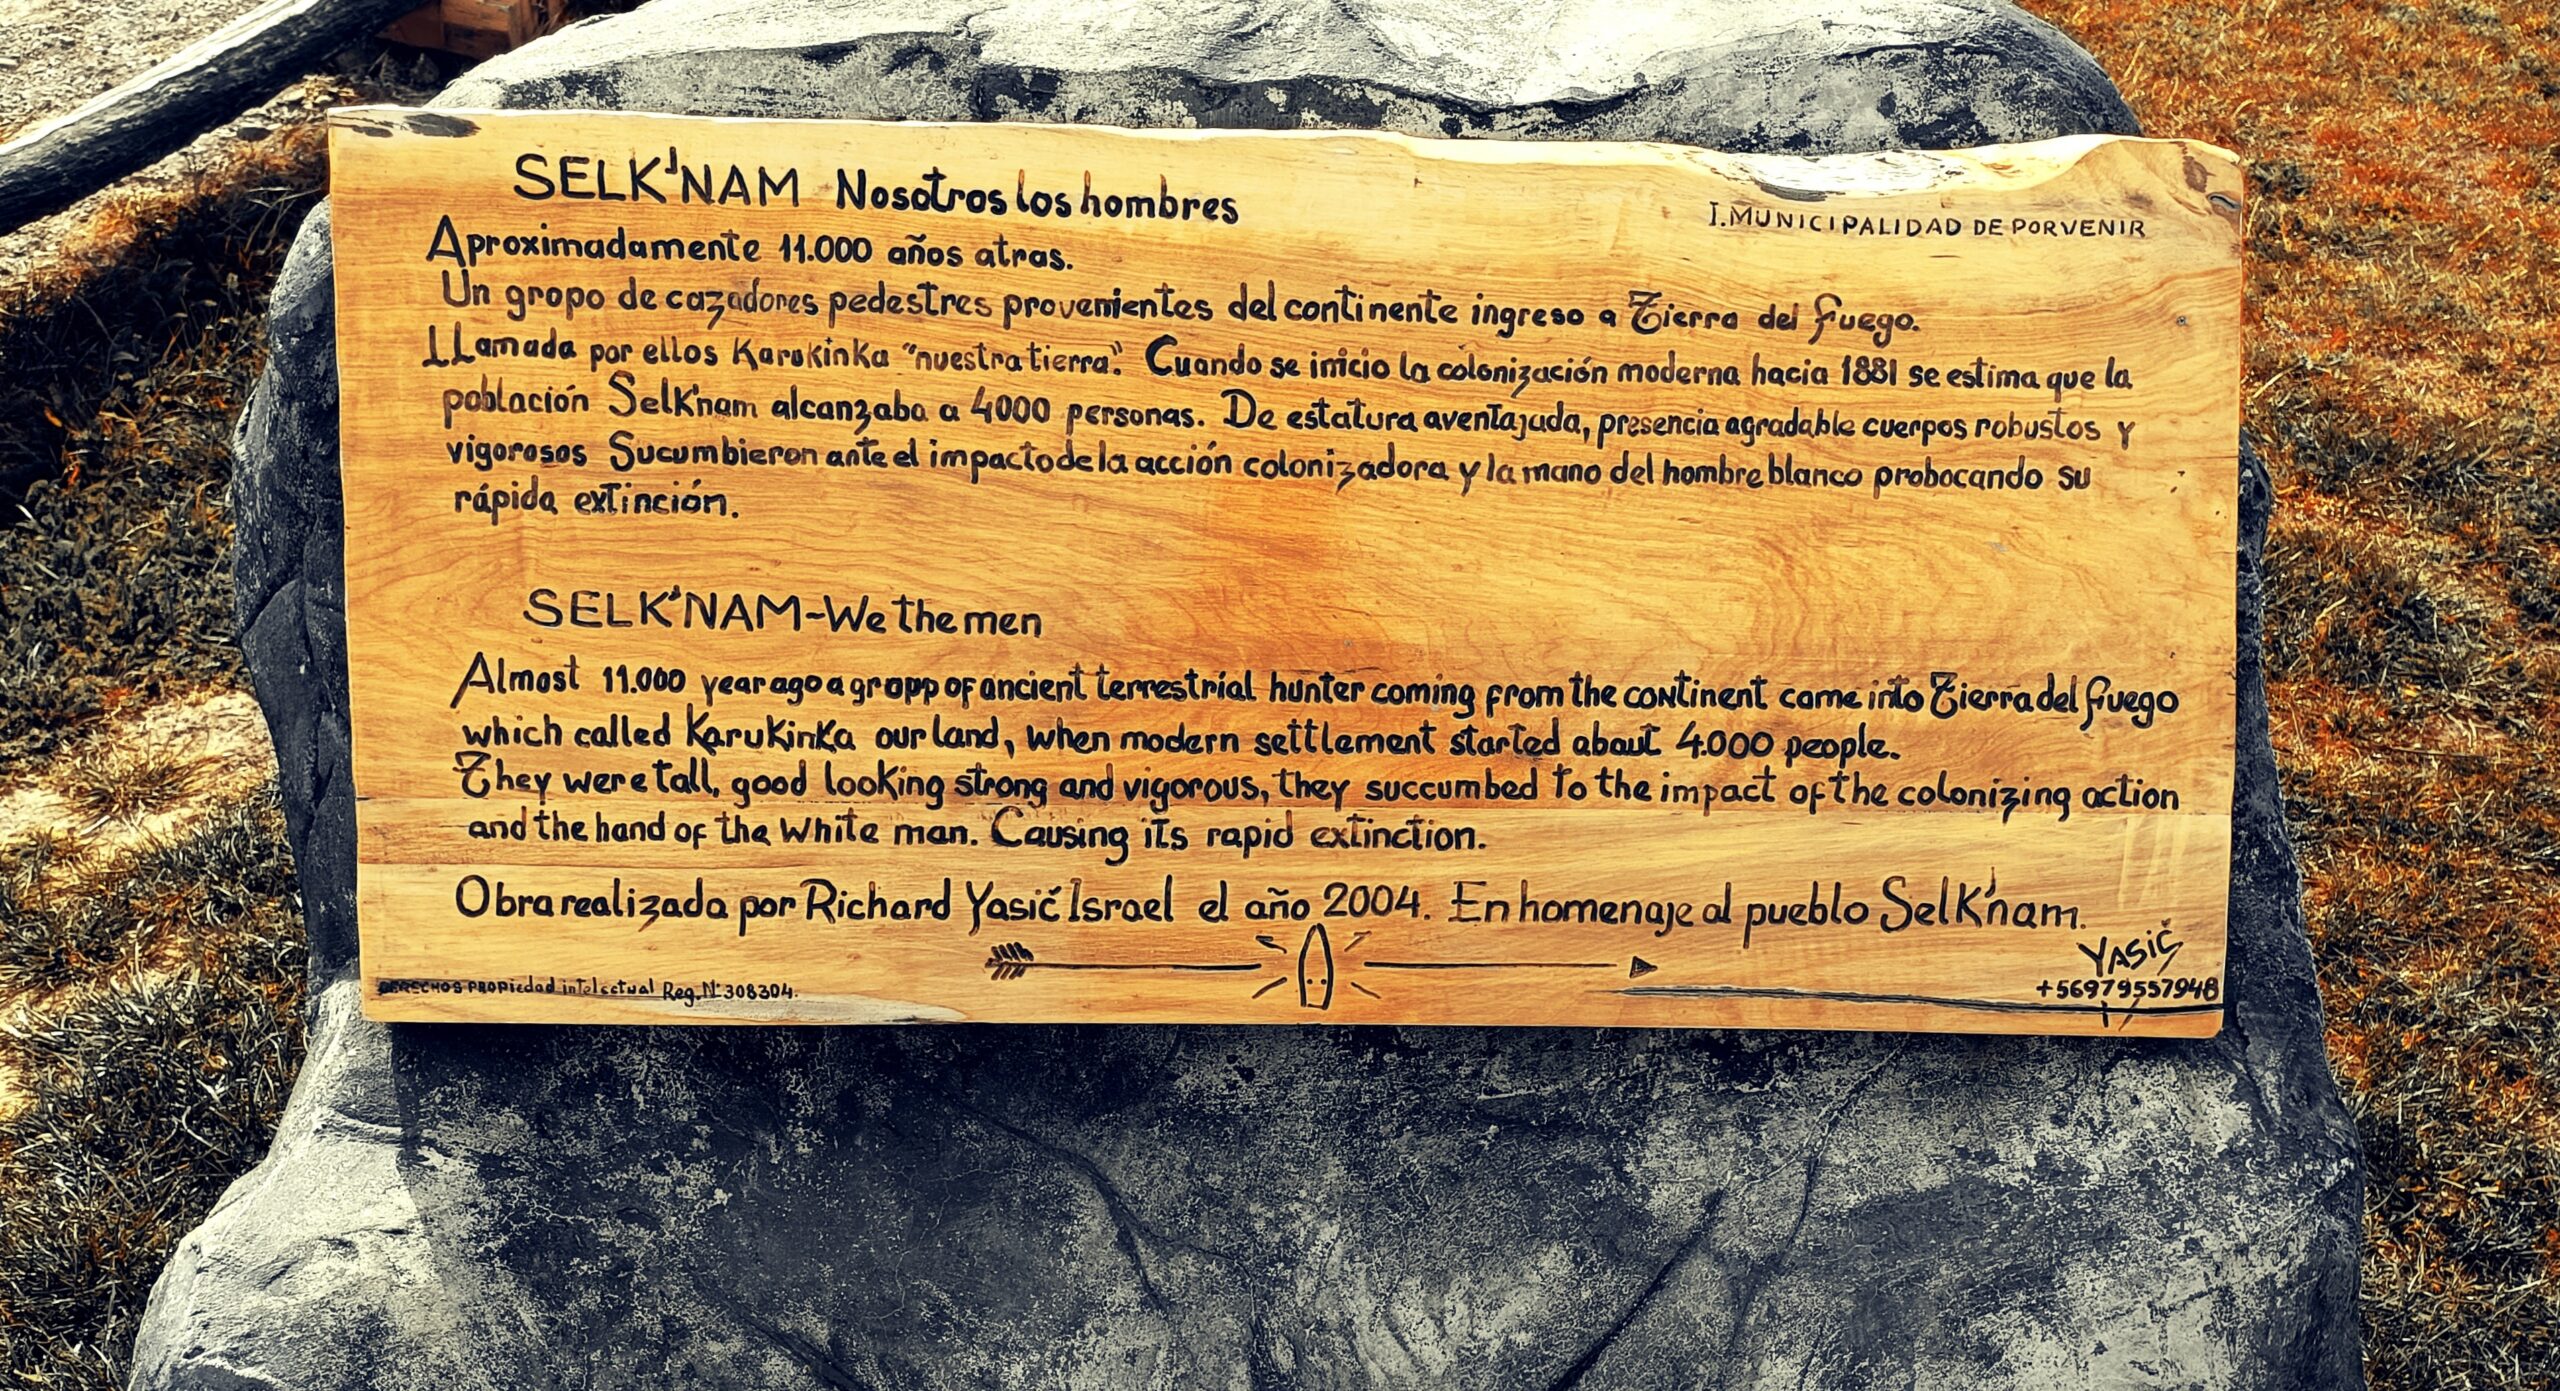 SELK'NAM Nosotros los hombres
I. MUNICIPALIDAD DE PORVENIR
Aproximadamente 11.000 años atras.
Un gropo de cazadores pedestres provenientes del continente ingreso a Tierra del fuego.
LLamada por ellos Karukinka "nuestra tierra". Cuando se inicio la colonización moderna hacia 1881 se estima que la
población Selk'nam alcanzaba a 4000 personas. De estatura aventajada, presencia agradable cuerpos robustos y
vigorosos Sucumbieron ante el impacto de la acción colonizadora y la mano del hombre blanco probocando su
rápida extinción.
SELK'NAM-We the men
Almost 11.000 year ago a gropp of ancient terrestrial hunter coming from the continent came into Tierra del fuego
which called Karukinka our land, when modern settlement started about 4.000 people.
They were tall, good looking strong and vigorous, they succumbed to the impact of the colonizing action
and the hand of the white man. Causing its rapid extinction.
Obra realizada por Richard Yasić Israel el año 2004. En homenaje al pueblo Selk'nam.
YASIĆ
DERECHOS PROPiedad intelectual Reg. N° 308304.
+56979557948